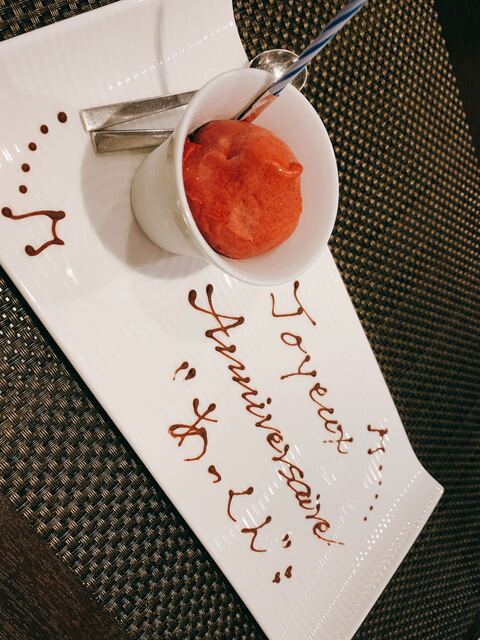 Joyeux
Anniversaire!
"あーくん"